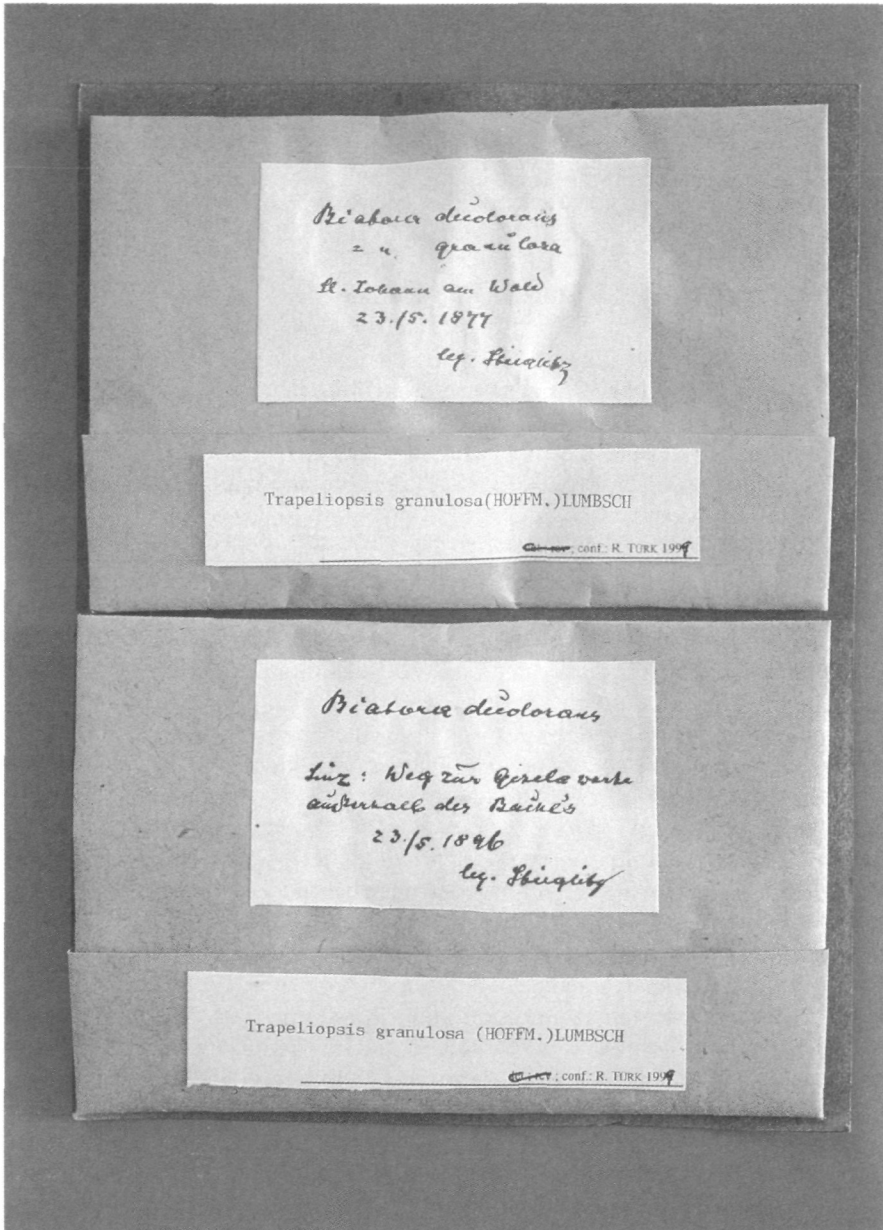 Biatora decolorans
= „ granulosa
St. Johann am Wald
23./5. 1877
leg. Stieglitz
Trapeliopsis granulosa(HOFFM.)LUMBSCH
; conf.: R. TÜRK 1999
Biatora decolorans
Linz : Weg zur Gisela warte
außerhalb des Bachl's
23./5. 1896
leg. Stieglitz
Trapeliopsis granulosa (HOFFM.)LUMBSCH
det.; rev ; conf.: R. TÜRK 1999